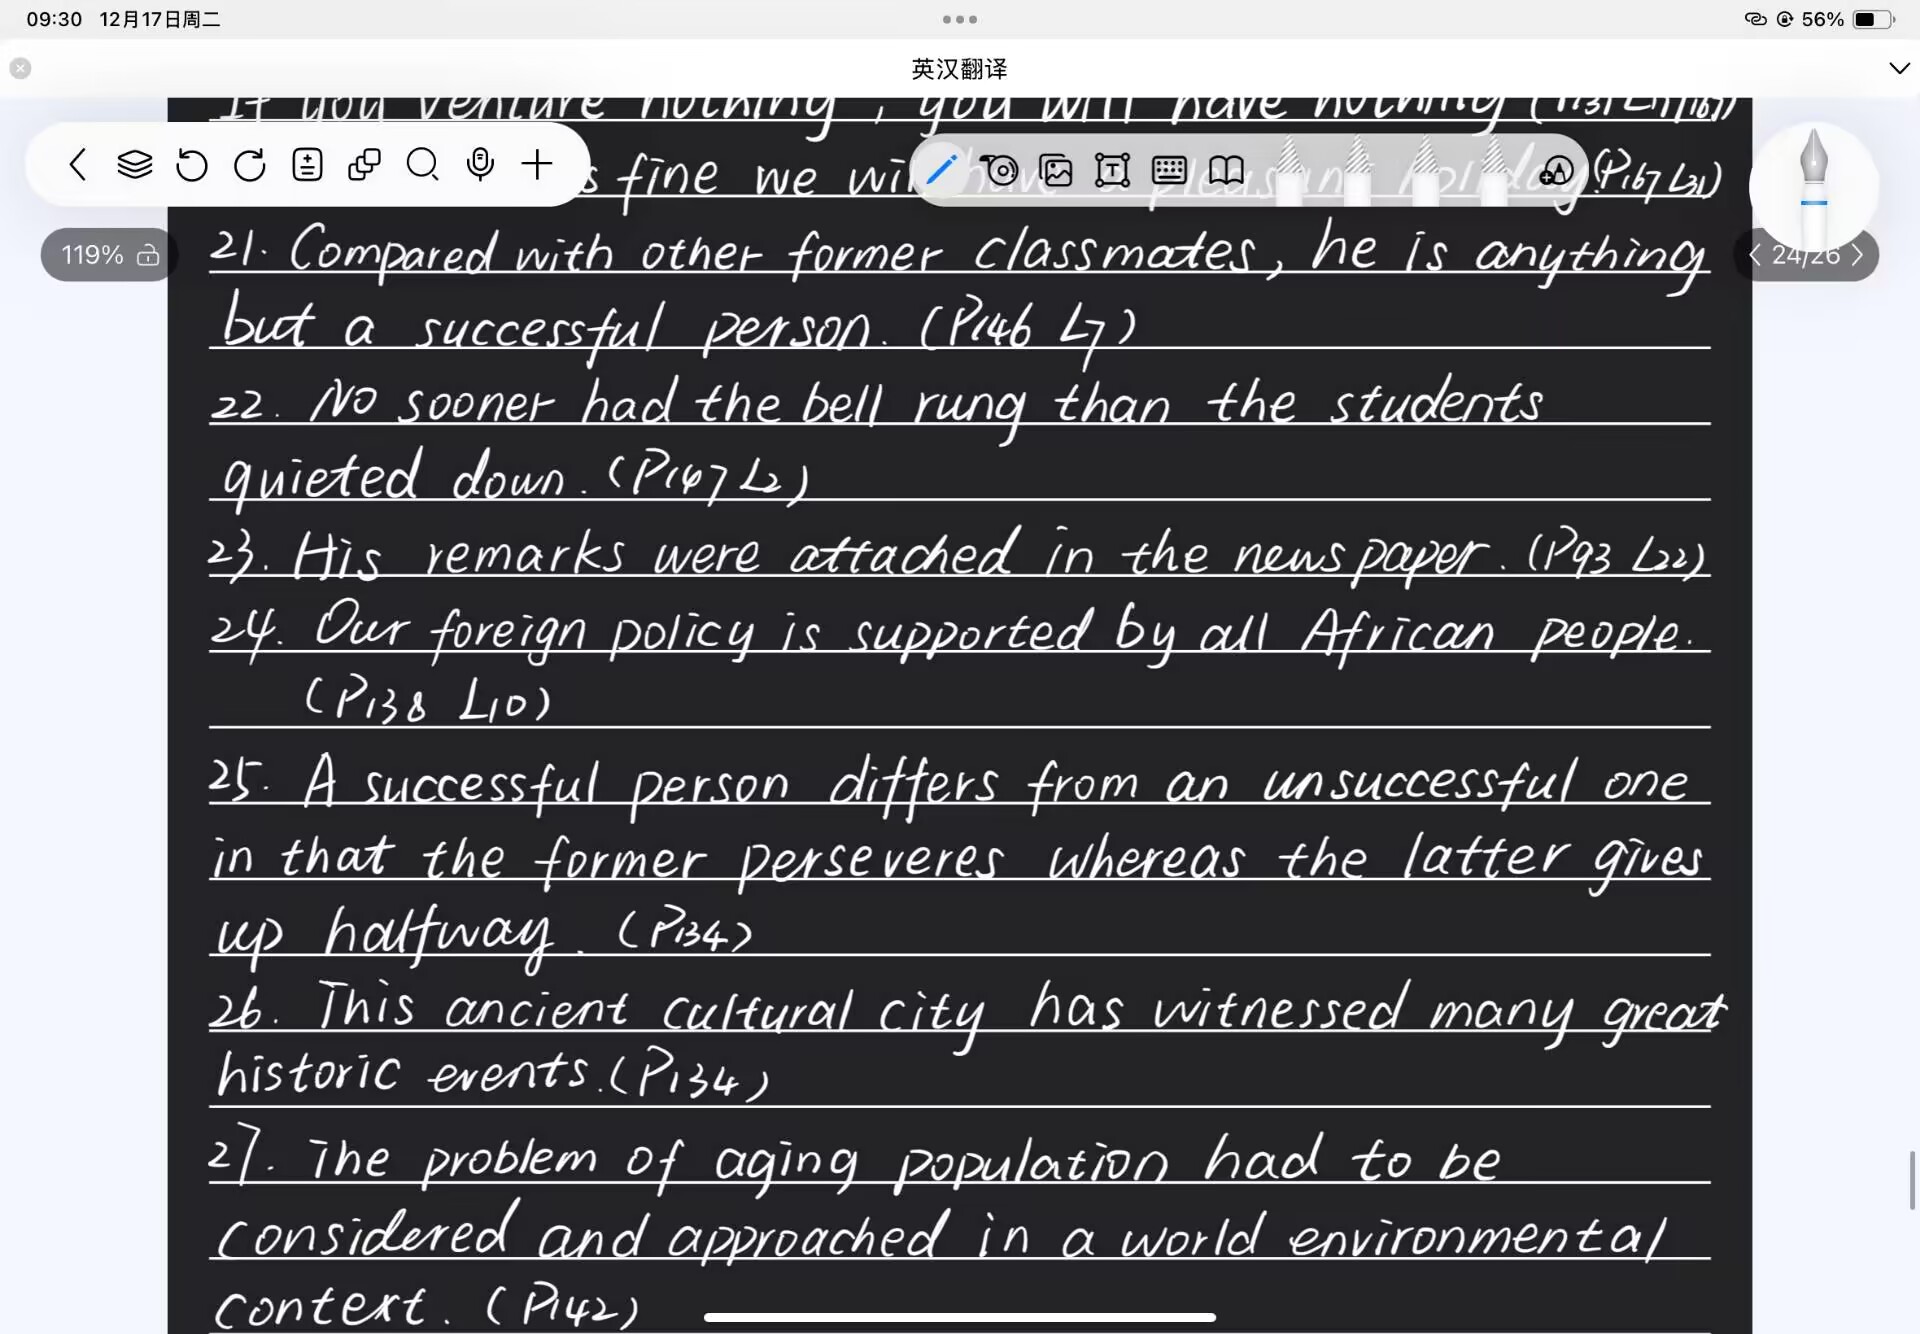 09:30 12月17日周二
56%
英汉翻译
If you venture nothing, you will have nothing
fine we will have a pleasant holiday. (P167 L31)
119%
24/26
21. Compared with other former classmates, he is anything
but a successful person. (P146 L7)
22. No sooner had the bell rung than the students
quieted down. (P147 L2)
23. His remarks were attached in the newspaper. (P93 L22)
24. Our foreign policy is supported by all African people.
(P138 L10)
25. A successful person differs from an unsuccessful one
in that the former perseveres whereas the latter gives
up halfway. (P134)
26. This ancient cultural city has witnessed many great
historic events. (P134)
27. The problem of aging population had to be
considered and approached in a world environmental
context. (P142)